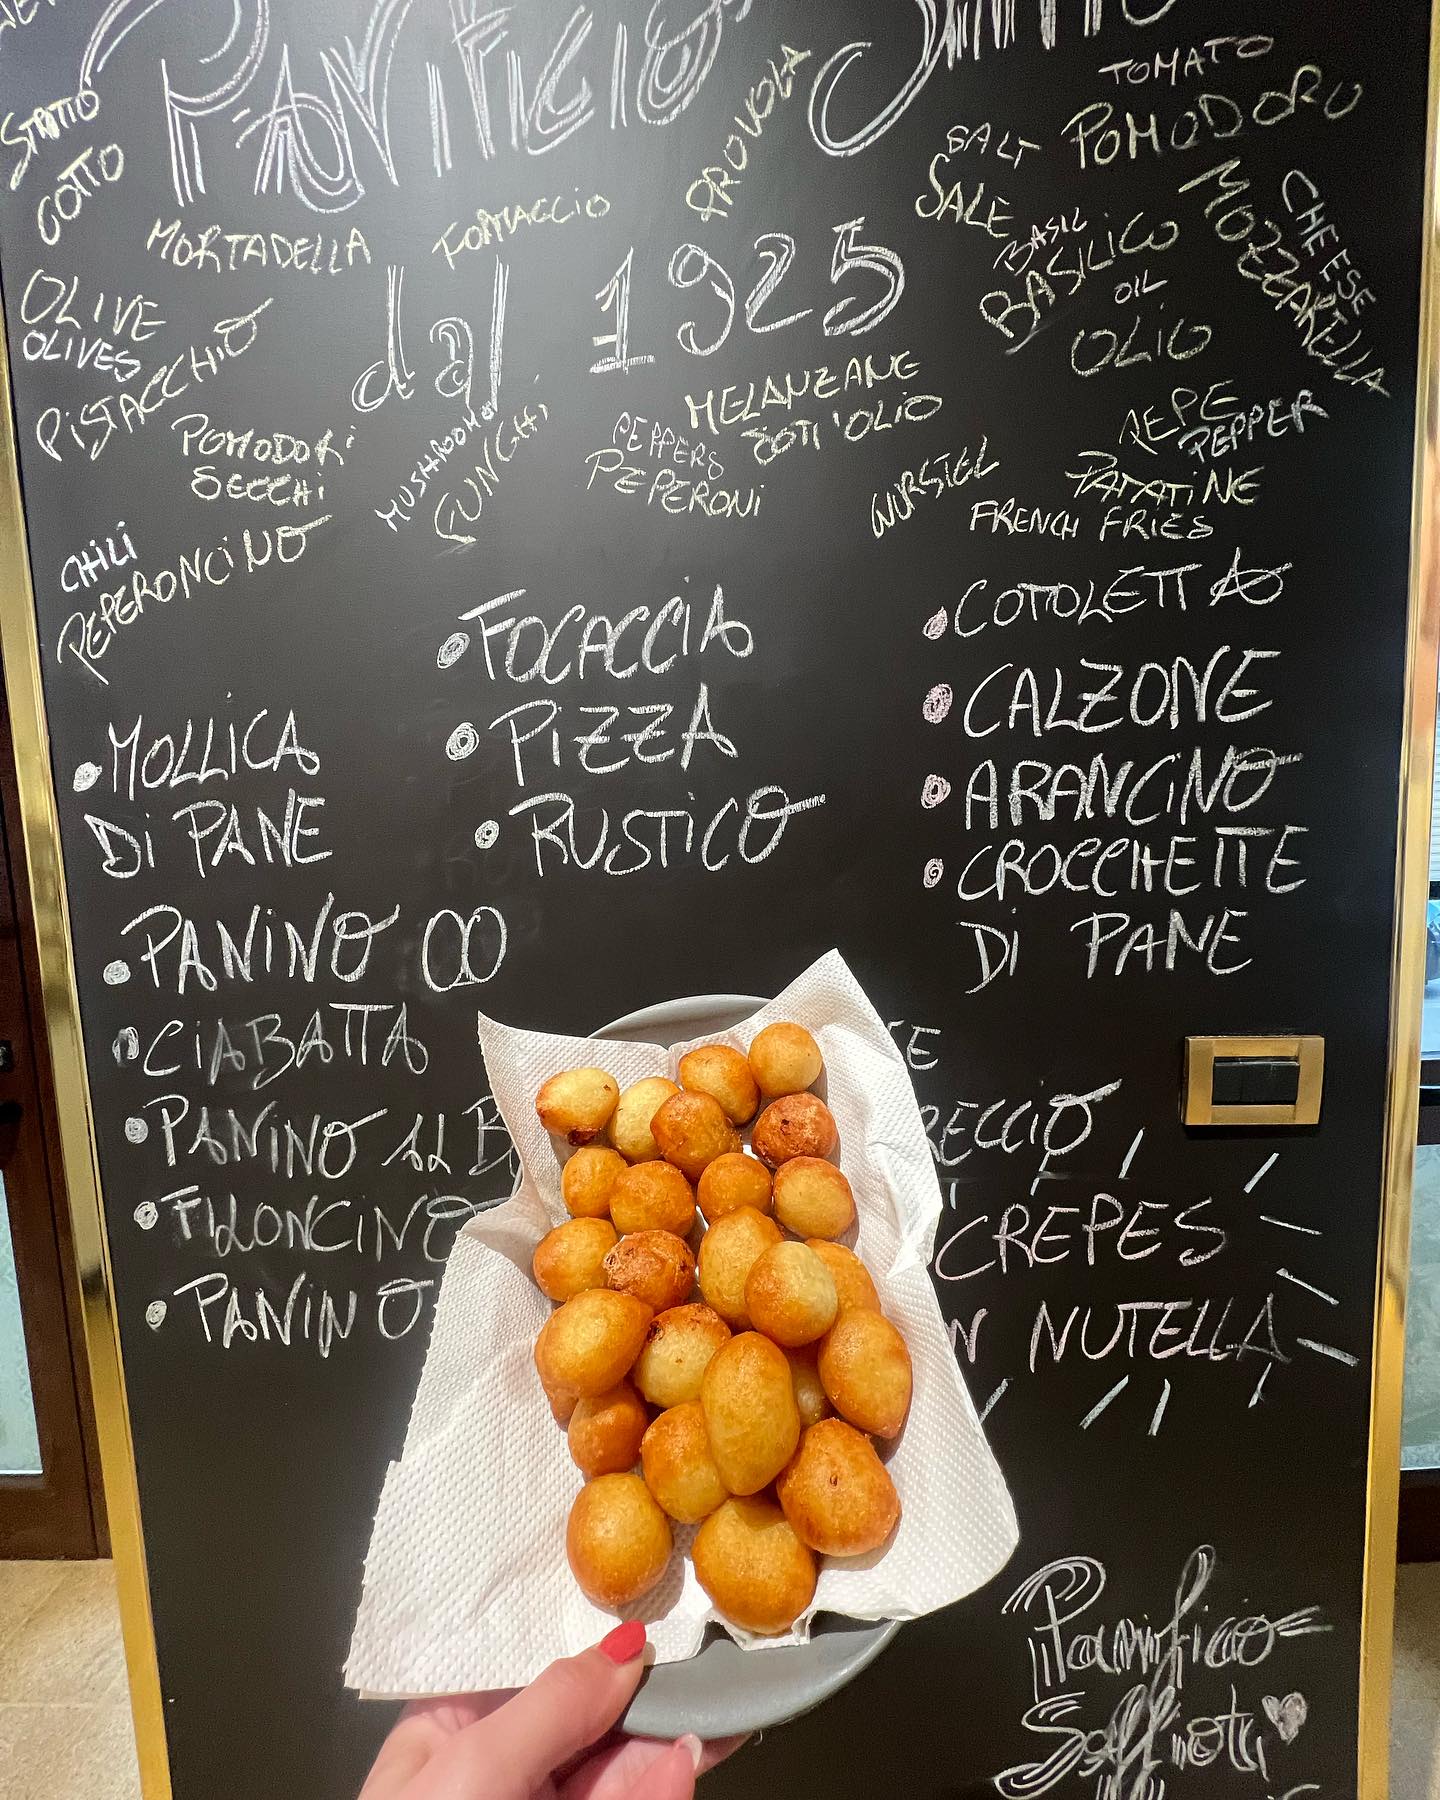 PANIFICIO
STRATTO
COTTO
MORTADELLA
FORMAGGIO
PROVOLA
TOMATO
POMODORO
SALT
SALE
BASIL
BASILICO
OIL
OLIO
CHEESE
MOZZARELLA
dal 1925
OLIVE
OLIVES
PISTACCHIO
POMODORI
SECCHI
MUSHROOMS
FUNGHI
PEPPERS
PEPERONI
MELANZANE
SOTT'OLIO
WURSTEL
PEPE
PEPPER
PATATINE
FRENCH FRIES
CHILI
PEPERONCINO
• MOLLICA
DI PANE
• PANINO
• CIABATTA
• PANINO AL
• FILONCINO
• PANINO
• FOCACCIA
• PIZZA
• RUSTICO
• COTOLETTA
• CALZONE
• ARANCINO
• CROCCHETTE
DI PANE
CREPES
NUTELLA
Panificio